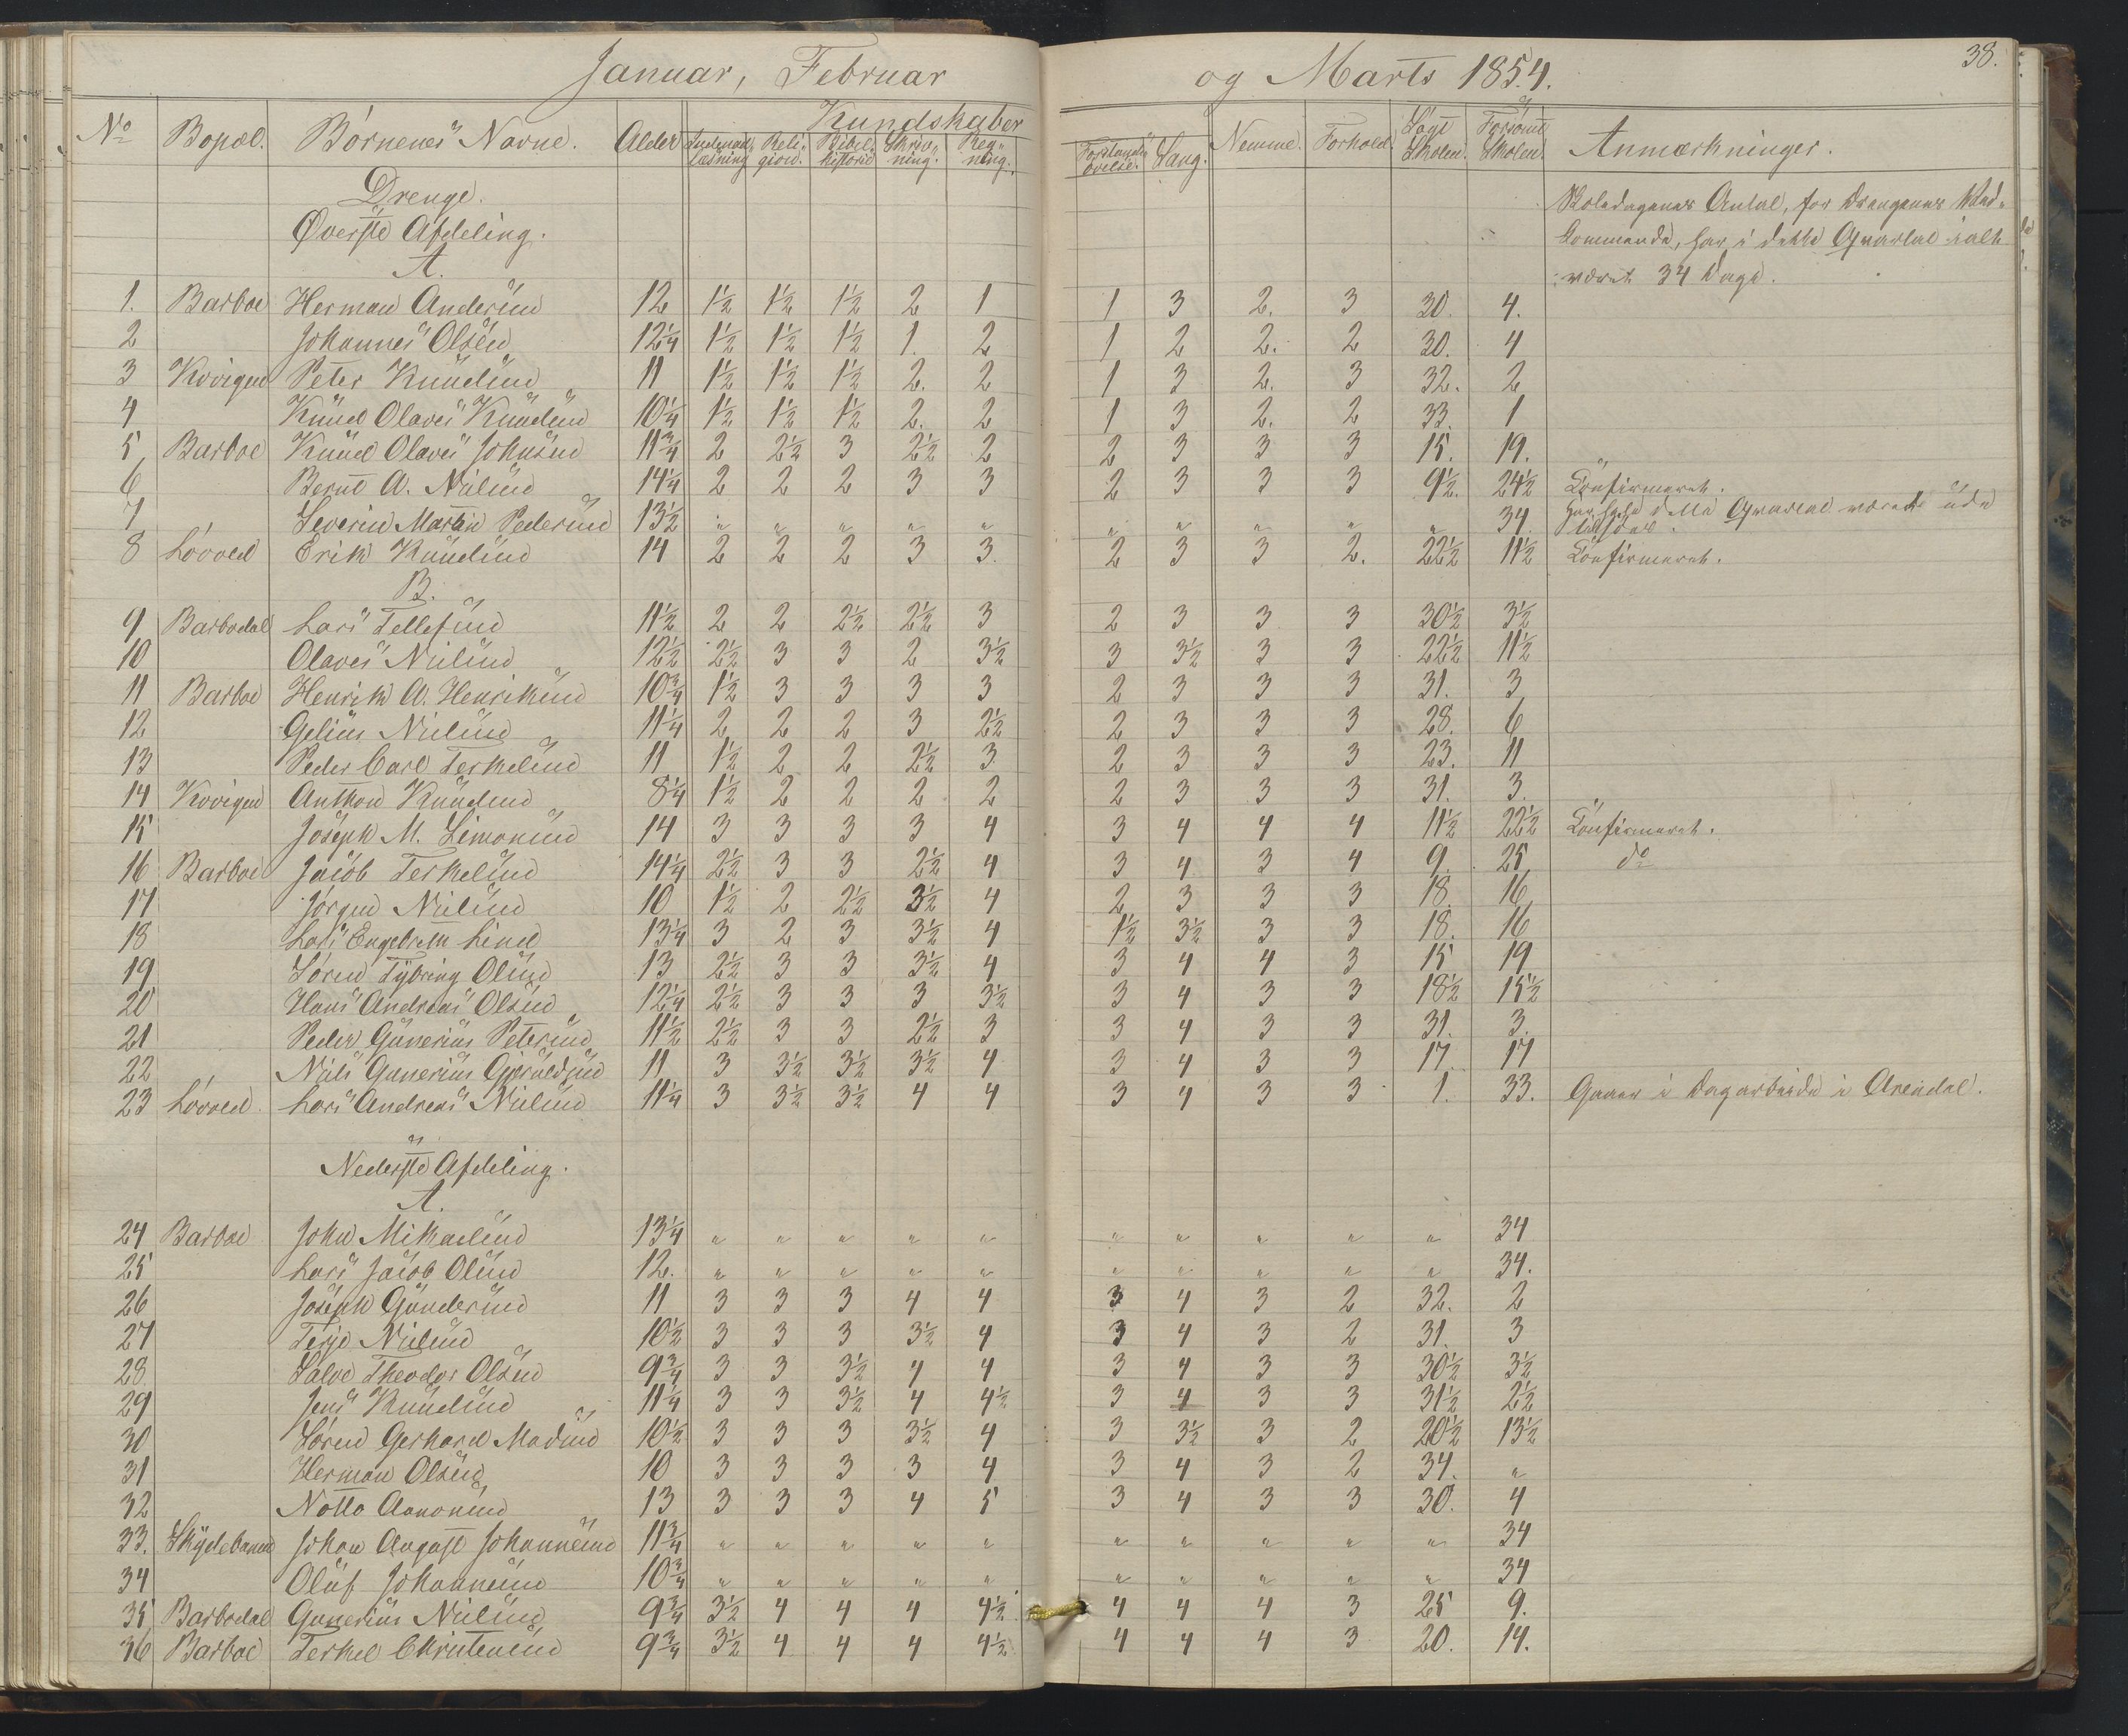 Januar, Februar og Marts 1854. 38.
No Bopæl. Børnenes Navne. Alder Kundskaber Nemme. Forhold. Søgt Skolen. Forsømt Skolen. Anmærkninger.
Indenadlæsning Religion. Bibelhistorie Skrivning. Regning. Forstandsøvelse. Sang.
Drenge.
Øverste Afdeling.
A.
Skoledagenes Antal, for Drengenes Vedkommende, har i dette Qvartal ialt været 34 Dage.
1. Barboe Herman Andersen 12 1½ 1½ 1½ 2 1 1 3 2. 3 30. 4.
2 Johannes Olsen 12¼ 1½ 1½ 1½ 1. 2 1 2 2. 2 30. 4
3 Kvvigen Peter Knudsen 11 1½ 1½ 1½ 2. 2 1 3 2. 3 32. 2
4 Knud Olaves Knudsen 10¼ 1½ 1½ 1½ 2. 2 1 3 2. 2 33. 1
5 Barboe Knud Olaves Johnsen 11¾ 2 2½ 3 2½ 2 2 3 3 3 15. 19.
6 Bernt A. Nilsen 14¼ 2 2 2 3 3 2 3 3 3 9½. 24½ Confirmeret.
7 Severin Martin Pedersen 13½ " " " " " " " " " " 34. Har hele dette Qvartal været ude tilsøes.
8 Løvold Erik Knudsen 14 2 2 2 3 3. 2 3 3 2. 22½ 11½ Confirmeret.
B.
9 Barbodal Lars Tellefsen 11½ 2 2 2½ 2½ 3 2 3 3 3 30½ 3½
10 Olaves Nilsen 12½ 2½ 3 3 2 3½ 3 3½ 3 3 22½ 11½
11 Barboe Henrik A. Henriksen 10¾ 1½ 3 3 3 3 2 3 3 3 31. 3
12 Gelius Nielsen 11¼ 2 2 2 3 2½ 2 3 3 3 28. 6
13 Peder Carl Terkelsen 11 1½ 2 2 2½ 3 2 3 3 3 23. 11
14 Kvvigen Anthon Knudsen 8¼ 1½ 2 2 2 2 2 3 3 3 31. 3.
15 Joseph M. Simonsen 14 3 3 3 3 4 3 4 4 4 11½ 22½ Confirmeret.
16 Barboe Jacob Terkelsen 14¼ 2½ 3 3 2½ 4 3 4 3 4 9. 25 do
17 Jørgen Nilsen 10 1½ 2 2½ 3½ 4 2 3 3 3 18. 16
18 Lars Engebreth Lind 13¼ 3 2 3 3½ 4 1½ 3½ 3 3 18. 16
19 Søren Tybring Olsen 13 2½ 3 3 3½ 4 3 4 4 3 15 19
20 Hans Andreas Olsen 12¼ 2½ 3 3 3 3½ 3 4 3 3 18½ 15½
21 Peder Gunerius Petersen 11½ 2½ 3 3 2½ 3 3 4 3 3 31. 3.
22 Niels Gunerius Gjeruldsen 11 3 3½ 3½ 3½ 4 3 4 3 3 17. 17
23 Løvold. Lars Andreas Nilsen 11¼ 3 3½ 3½ 4 4 3 4 3 3 1. 33. Gaaer i Dagarbeide i Arendal.
Nederste Afdeling.
A.
24 Barboe John Mikaelsen 13¼ " " " " " " " " " " 34
25 Lars Jacob Olsen 12. " " " " " " " " " " 34.
26 Joseph Gundersen 11 3 3 3 4 4 3 4 3 2 32. 2
27 Terje Nielsen 10½ 3 3 3 3½ 4 3 4 3 2 31. 3
28. Salve Theodor Olsen 9¾ 3 3 3½ 4 4 3 4 3 3 30½ 3½
29 Jens Knudsen 11¼ 3 3 3½ 4 4½ 3 4 3 3 31½ 2½
30 Søren Gerhard Madsen 10½ 3 3 3 3½ 4 3 3½ 3 2 20½ 13½
31 Herman Olsen 10 3 3 3 3 4 3 4 3 2 34. "
32 Notto Aanonsen 13 3 3 3 4 5 3 4 3 3 30. 4
33. Skydebanen Johan August Johannesen 11¾ " " " " " " " " " " 34
34 Oluf Johannesen 10¾ " " " " " " " " " " 34
35 Barbodal Gunerius Nielsen 9¾ 3½ 4 4 4 4½ 4 4 4 3 25 9.
36 Barboe Terkel Christensen 9¾ 3½ 4 4 4 4½ 4 4 4 3 20. 14.